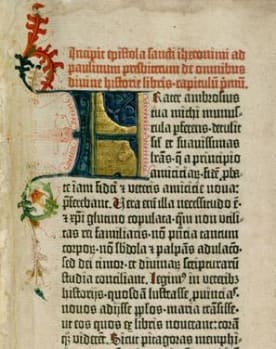 Incipit epistola sancti iheronimi ad
paulinum presbiterum de omnibus
divine historie libris · capitulum pⁱmū.
Frater ambrosius
tua michi munus-
cula pferens · detulit
sił et suavissimas
lrās · q̄ a principio
amiciciaꝝ · fidē pba-
te iam fidei et veteris amicicie nova:
pferebant. Vera eni illa necessitudo ē ·
et xpi glutino copulata · qm̄ non utili-
tas rei familiaris · nō pn̄tia tantum
corpoꝝ · nō sbdola et palpās adulaco ·
sed dei timor · et divinaꝝ scripturarū
studia conciliant. Legimꝰ in veterib
historijs · quosdā lustrasse puīcias ·
novos adijsse pplos · maria trāsisse ·
ut eos quos ex libris noverant: corā
qꝫ viderēt. Sicut pitagoras memphi-